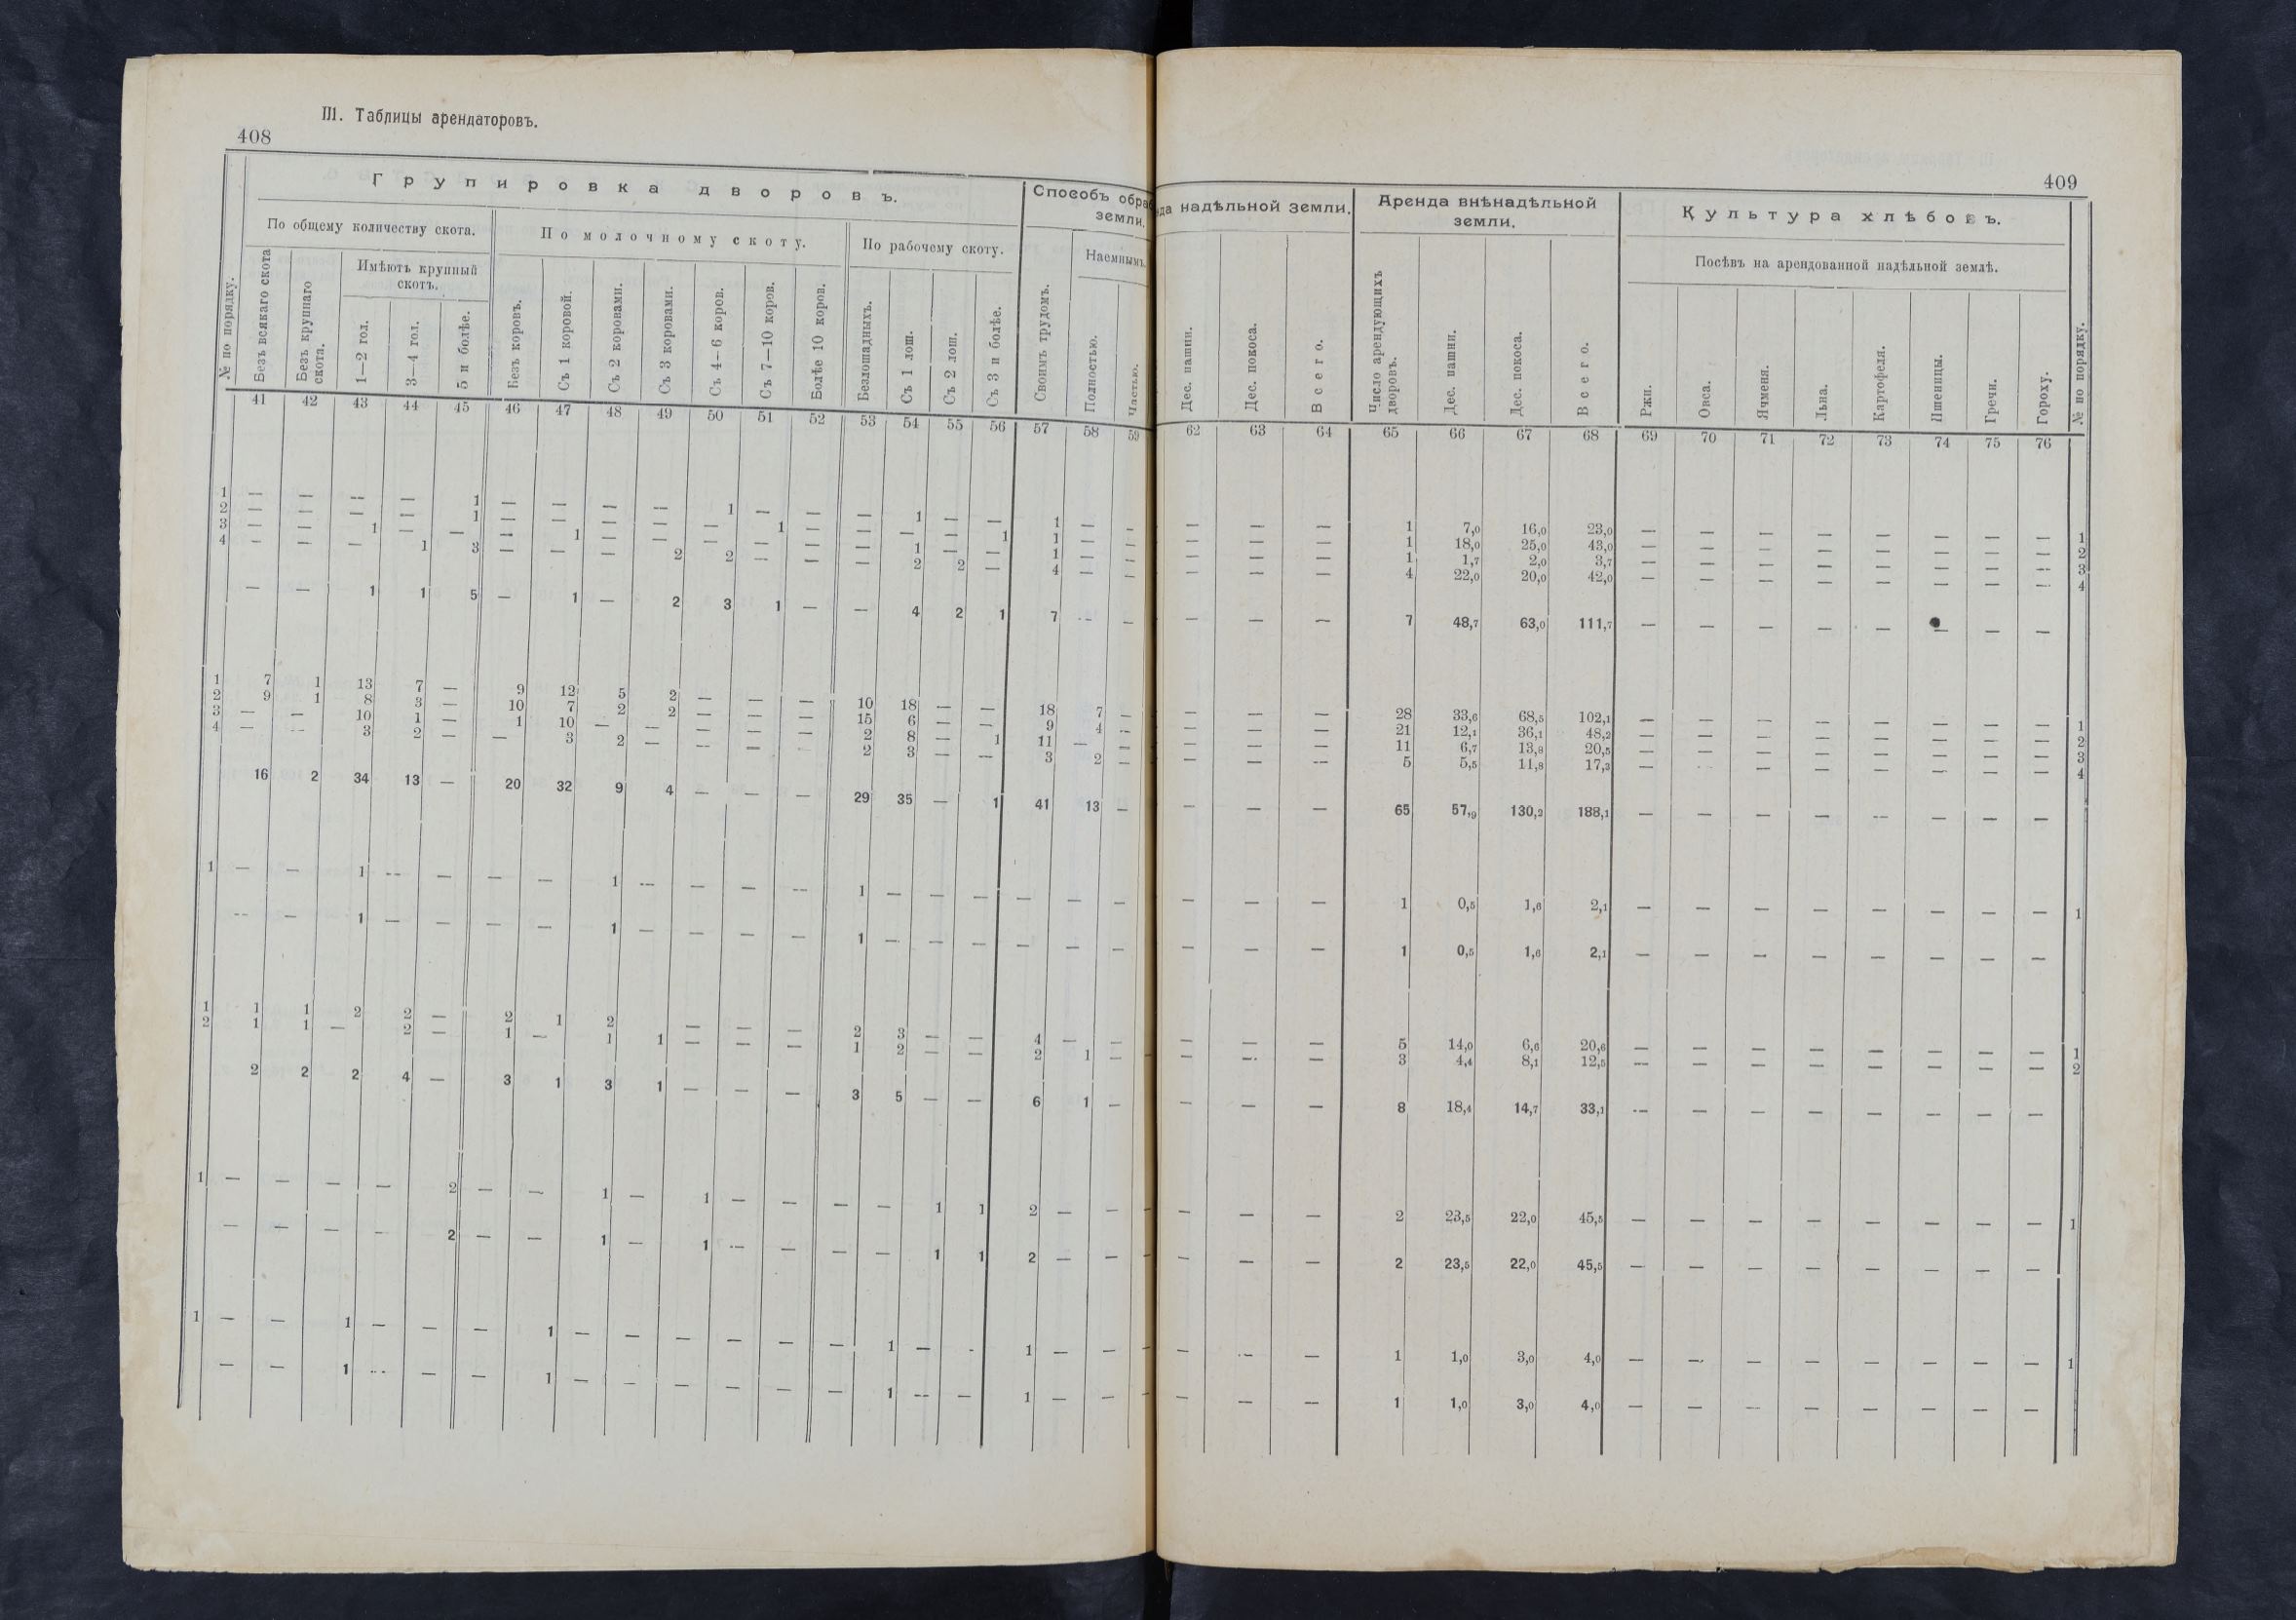 III. Таблицы арендаторовъ.
408
Группировка дворовъ.
Способъ обраб
земли.
По общему количеству скота.
По молочному скоту.
По рабочему скоту.
Наемнымъ.
Имѣютъ крупный
скотъ.
№ по порядку.
Безъ всякаго скота
Безъ крупнаго
скота.
1—2 гол.
3—4 гол.
5 и болѣе.
Безъ коровъ.
Съ 1 коровой.
Съ 2 коровами.
Съ 3 коровами.
Съ 4—6 коров.
Съ 7—10 коров.
Болѣе 10 коров.
Безлошадныхъ.
Съ 1 лош.
Съ 2 лош.
Съ 3 и болѣе.
Своимъ трудомъ.
Полностью.
Частью.
41 42 43 44 45 46 47 48 49 50 51 52 53 54 55 56 57 58 59
1 — — — — 1 — — — — 1 — — — 1 — — 1 — —
2 — — — — 1 — — — — — 1 — — — — 1 1 — —
3 — — 1 — — — 1 — — — — — — 1 — — 1 — —
4 — — — 1 3 — — — 2 2 — — — 2 2 — 4 — —
— — 1 1 5 — 1 — 2 3 1 — — 4 2 1 7 — —
1 7 1 13 7 — 9 12 5 2 — — — 10 18 — — 18 7 —
2 9 1 8 3 — 10 7 2 2 — — — 15 6 — — 9 4 —
3 — — 10 1 — 1 10 — — — — — 2 8 — 1 11 — —
4 — — 3 2 — — 3 2 — — — — 2 3 — — 3 2 —
16 2 34 13 — 20 32 9 4 — — — 29 35 — 1 41 13 —
1 — — 1 — — — — 1 — — — — 1 — — — — — —
— — 1 — — — — 1 — — — — 1 — — — — — —
1 1 1 2 2 — 2 1 2 — — — — 2 3 — — 4 — —
2 1 1 — 2 — 1 — 1 1 — — — 1 2 — — 2 1 —
2 2 2 4 — 3 1 3 1 — — — 3 5 — — 6 1 —
1 — — — — 2 — — 1 — 1 — — — — 1 1 2 — —
— — — — 2 — — 1 — 1 — — — — 1 1 2 — —
1 — — 1 — — — 1 — — — — — — 1 — - 1 — —
— — 1 — — — 1 — — — — — — 1 — — 1 — —
409
нда надѣльной земли.
Аренда внѣнадѣльной
земли.
Культура хлѣбовъ.
Посѣвъ на арендованной надѣльной землѣ.
Дес. пашни.
Дес. покоса.
Всего.
Число арендующихъ
дворовъ.
Дес. пашни.
Дес. покоса.
Всего.
Ржи.
Овса.
Ячменя.
Льна.
Картофеля.
Пшеницы.
Гречи.
Гороху.
№ по порядку.
62 63 64 65 66 67 68 69 70 71 72 73 74 75 76
— — — 1 7,0 16,0 23,0 — — — — — — — — 1
— — — 1 18,0 25,0 43,0 — — — — — — — — 2
— — — 1 1,7 2,0 3,7 — — — — — — — — 3
— — — 4 22,0 20,0 42,0 — — — — — — — — 4
— — — 7 48,7 63,0 111,7 — — — — — — — —
— — — 28 33,6 68,5 102,1 — — — — — — — — 1
— — — 21 12,1 36,1 48,2 — — — — — — — — 2
— — — 11 6,7 13,8 20,5 — — — — — — — — 3
— — — 5 5,5 11,8 17,3 — — — — — — — — 4
— — — 65 57,9 130,2 188,1 — — — — — — — —
— — — 1 0,5 1,6 2,1 — — — — — — — — 1
— — — 1 0,5 1,6 2,1 — — — — — — — —
— — — 5 14,0 6,6 20,6 — — — — — — — — 1
— — — 3 4,4 8,1 12,5 — — — — — — — — 2
— — — 8 18,4 14,7 33,1 — — — — — — — —
— — — 2 23,5 22,0 45,5 — — — — — — — — 1
— — — 2 23,5 22,0 45,5 — — — — — — — —
— — — 1 1,0 3,0 4,0 — — — — — — — — 1
— — — 1 1,0 3,0 4,0 — — — — — — — —